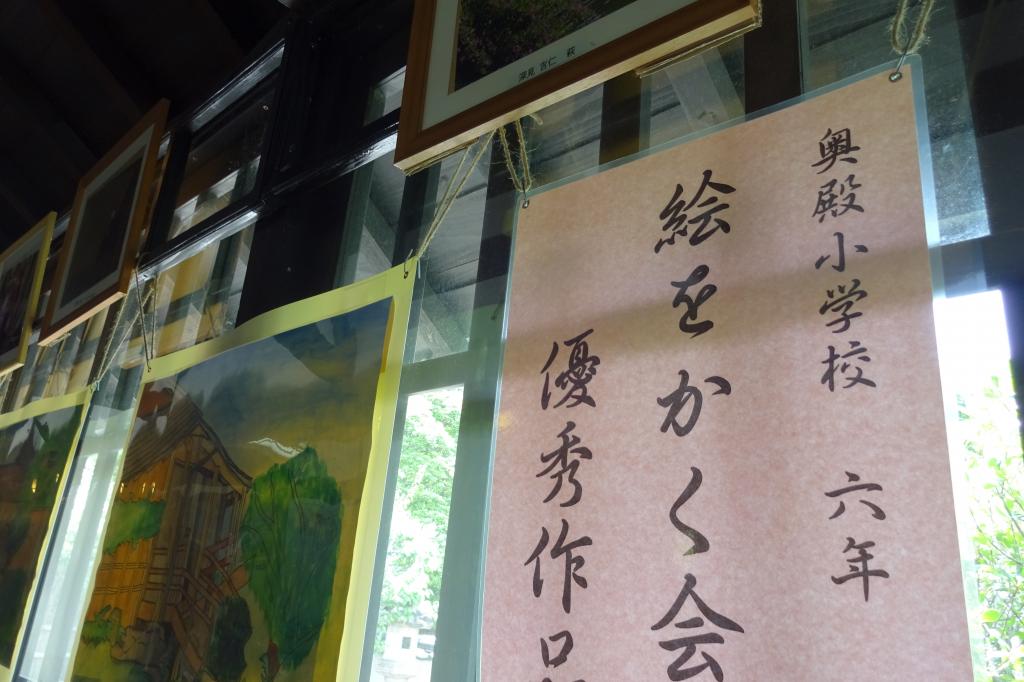 深見 吉仁 萩
奥殿小学校 六年
絵をかく会
優秀作品